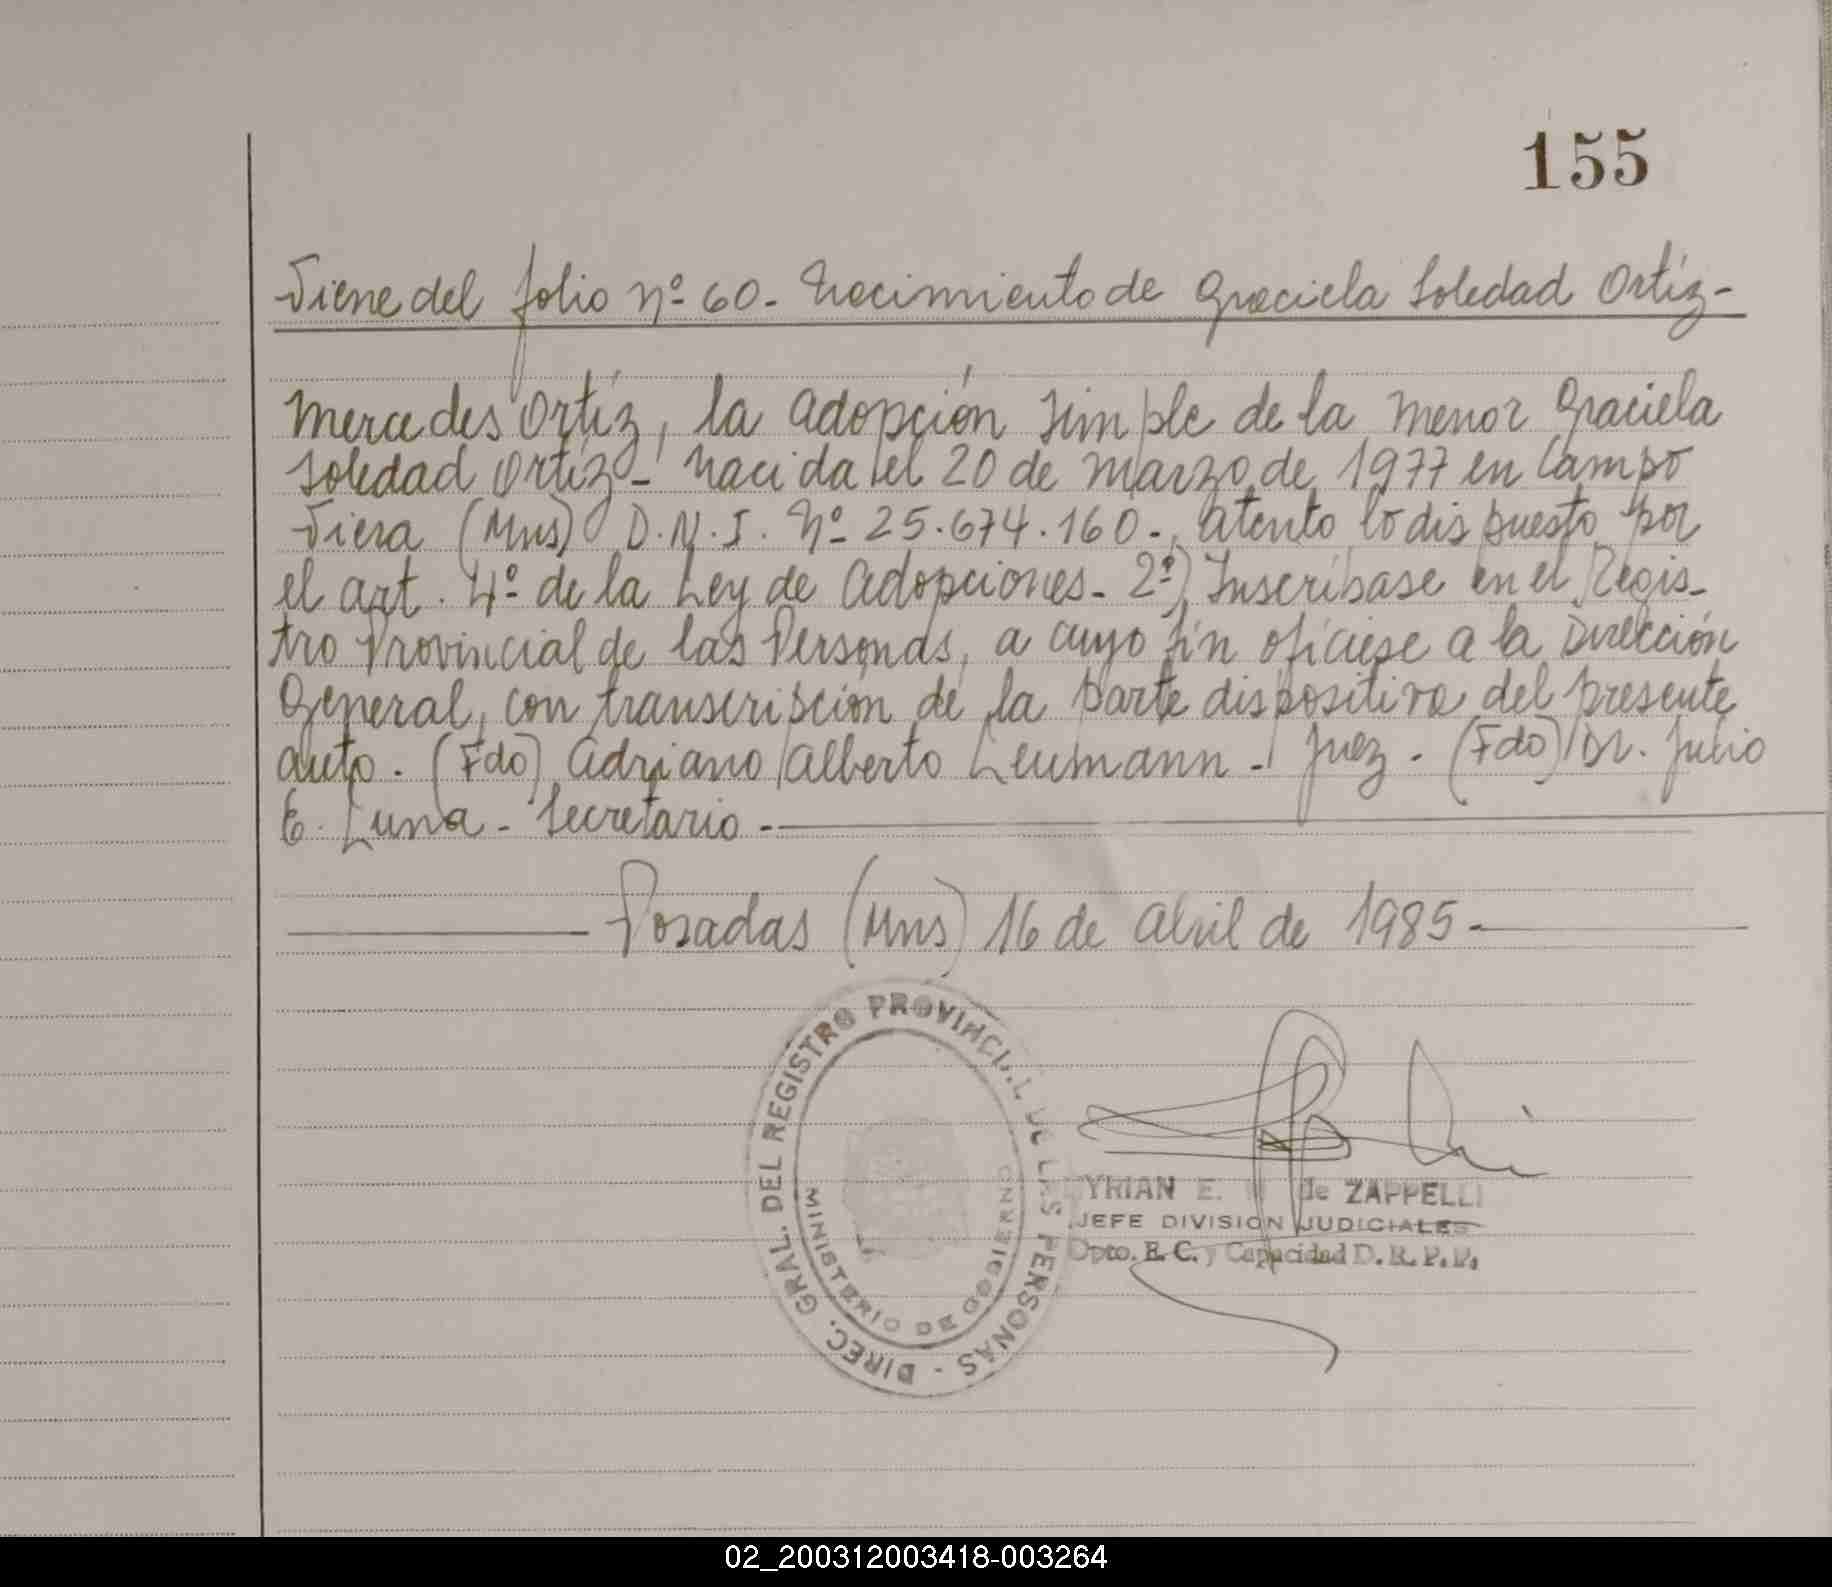 155
Viene del folio Nº 60 - Nacimiento de Graciela Soledad Ortíz -
Mercedes Ortíz, la adopción simple de la menor Graciela
Soledad Ortíz - nacida el 20 de marzo de 1977 en Campo
Viera (Mns) D.N.I. Nº 25.674.160 -, atento lo dispuesto por
el art. 4º de la Ley de Adopciones - 2º) Inscríbase en el Regis-
tro Provincial de las Personas, a cuyo fin ofíciese a la Dirección
General, con transcripción de la parte dispositiva del presente
auto. (Fdo) Adriano Alberto Leumann - Juez. (Fdo) Dr. Julio
E. Luna - Secretario. -
Posadas (Mns) 16 de Abril de 1985 -
DIREC. GRAL. DEL REGISTRO PROVINCIAL DE LAS PERSONAS -
MINISTERIO DE GOBIERNO
YRIAN E. de ZAPPELLI
JEFE DIVISION JUDICIALES
Dpto. E. C. y Capacidad D. R. P. P.
02_200312003418-003264